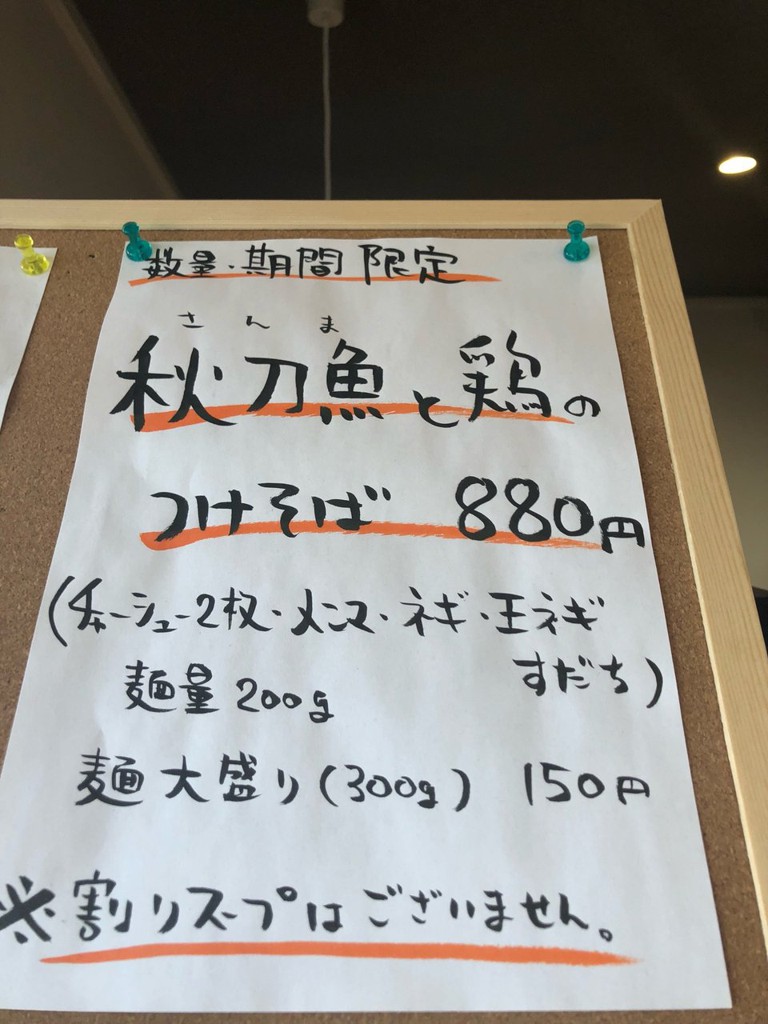 数量・期間限定
さんま
秋刀魚と鶏の
つけそば 880円
(チャーシュー2枚・メンマ・ネギ・玉ネギ
すだち)
麺量 200g
麺大盛り(300g) 150円
※割りスープはございません。